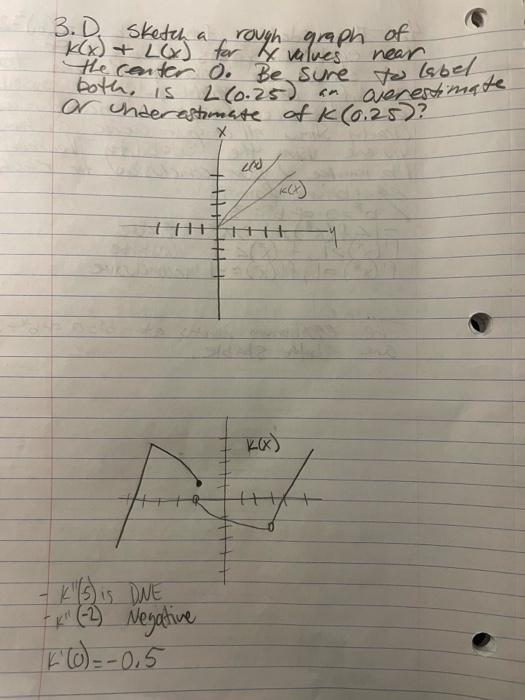 3. D. Sketch a rough graph of
K(x) + L(x) for x values near
the center 0. Be sure to label
both. is L(0.25) an overestimate
or underestimate of K(0.25)?
x
L(x)
K(x)
y
K(x)
- K"(5) is DNE
- K" (-2) Negative
K'(0) = -0.5